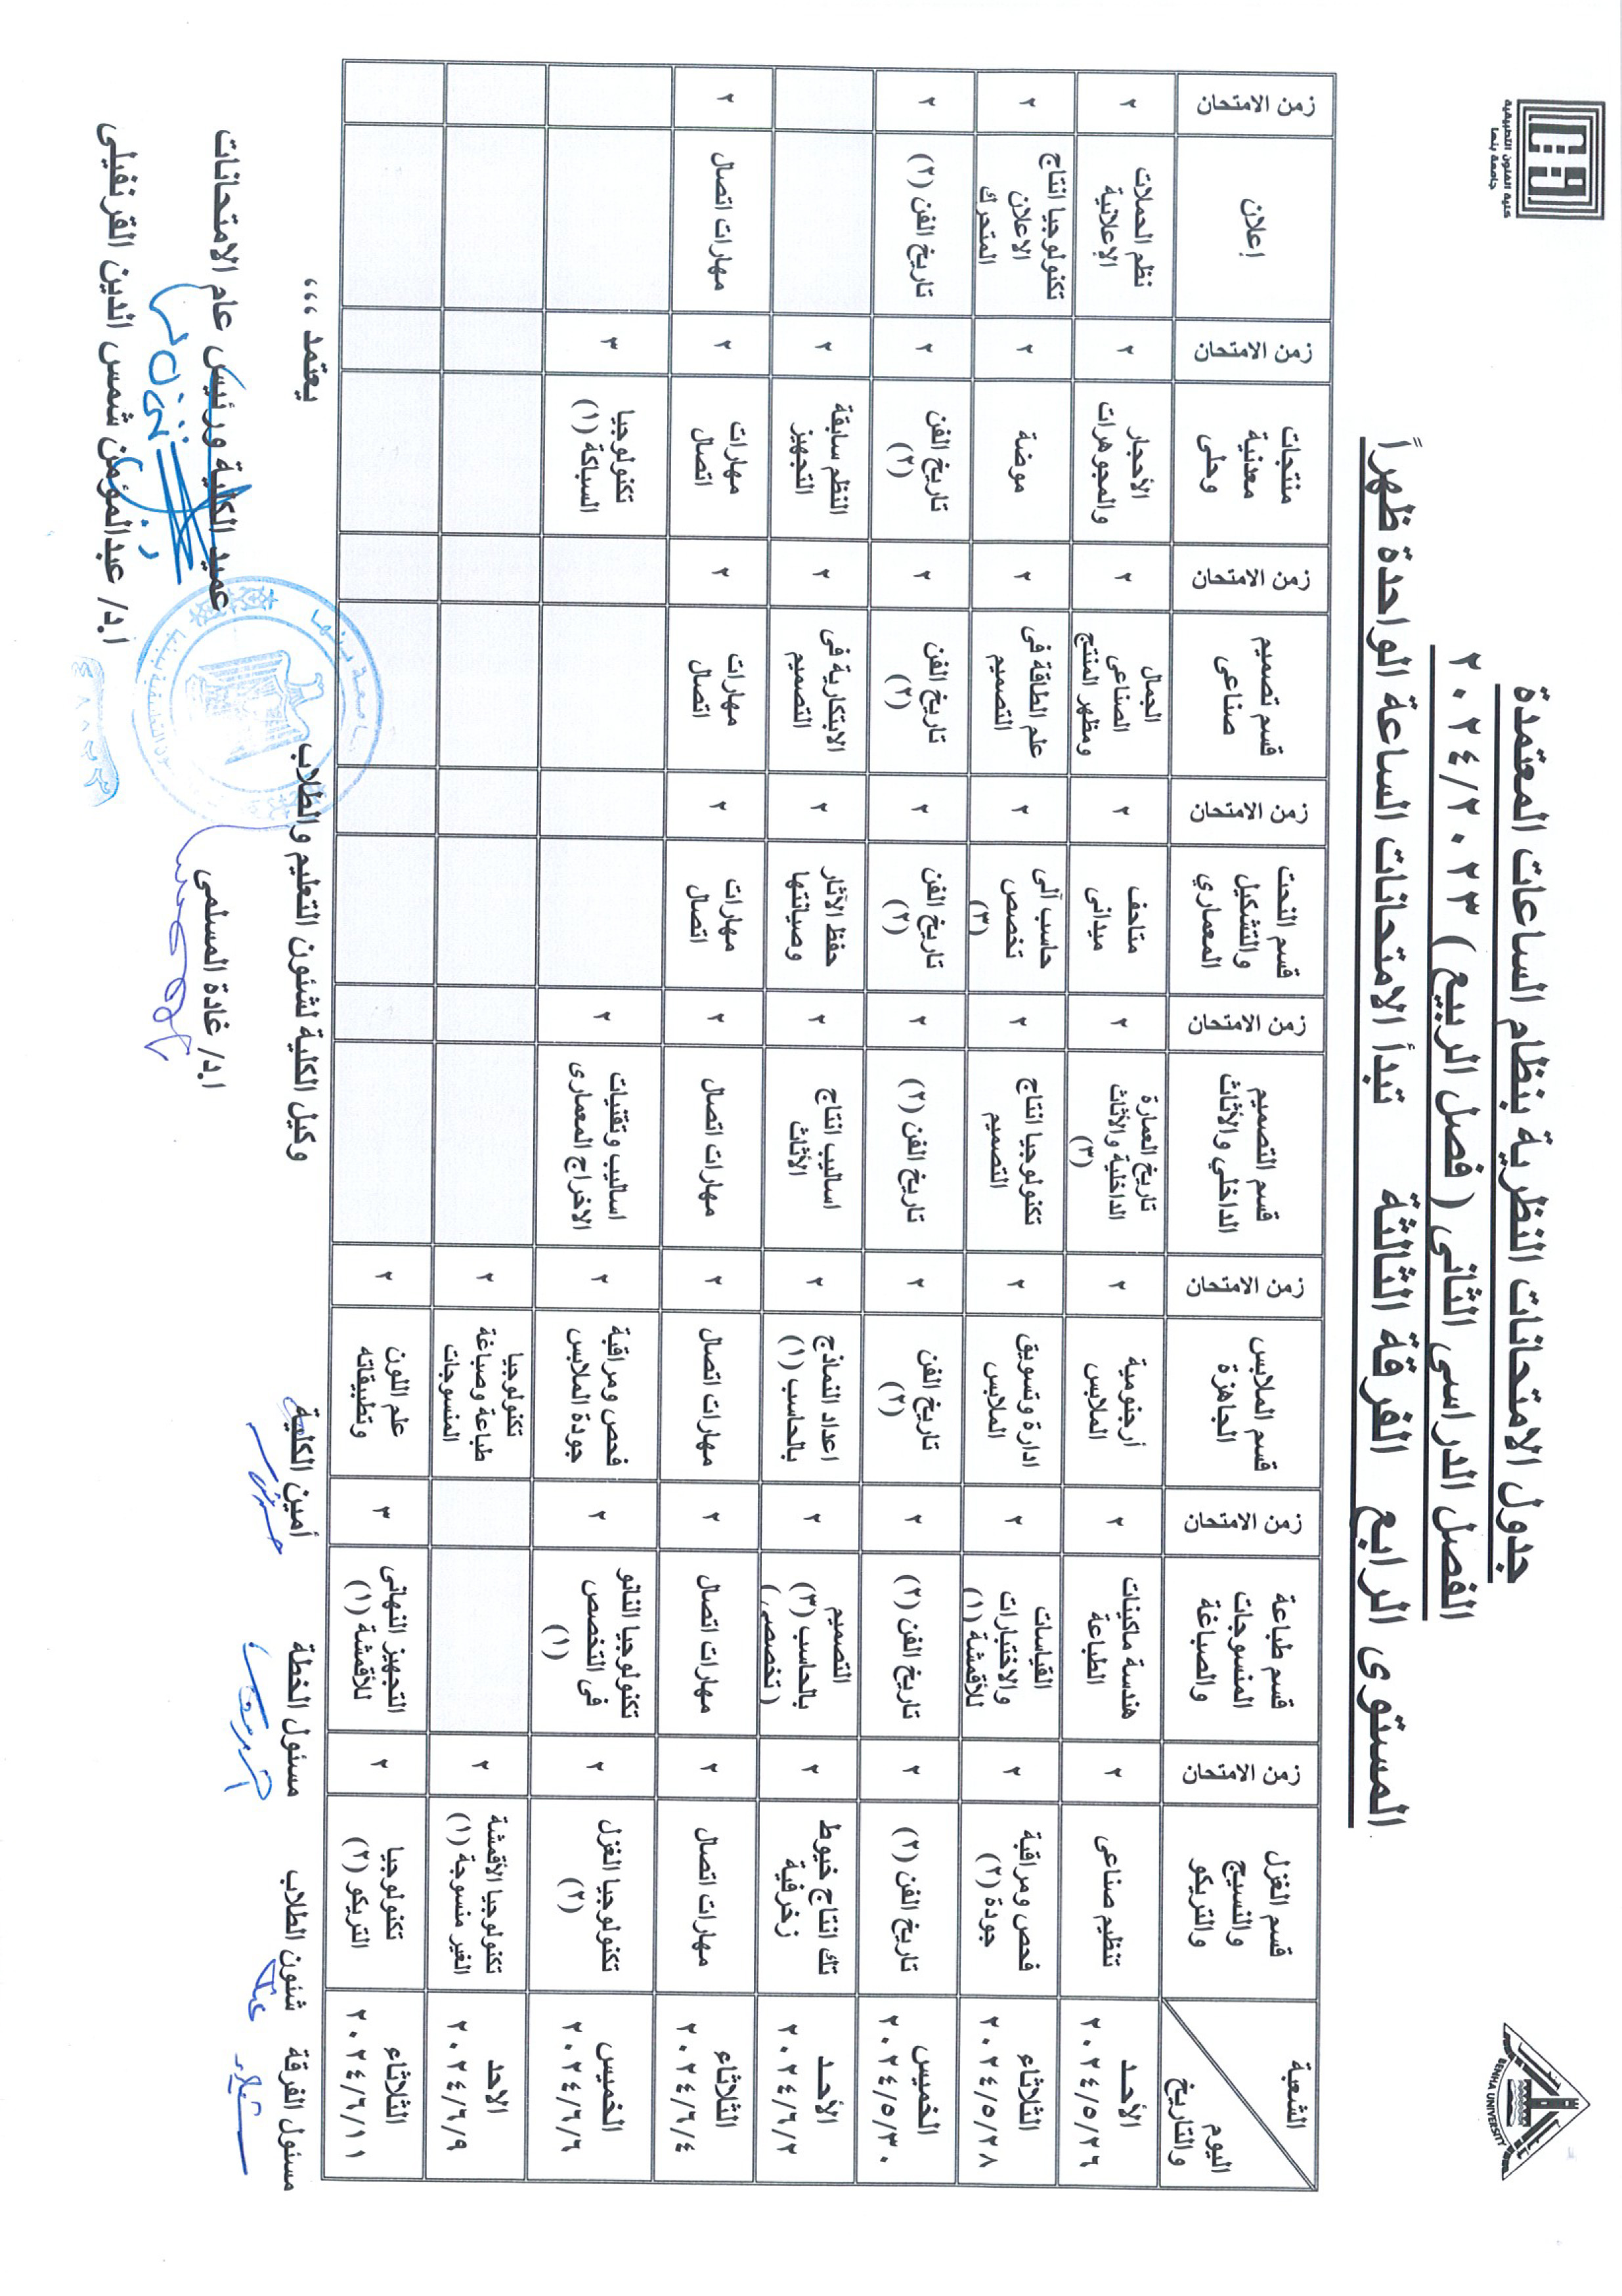 كلية الفنون التطبيقية
جامعة بنها
BENHA UNIVERSITY
جدول الامتحانات النظرية بنظام الساعات المعتمدة
الفصل الدراسى الثانى ( فصل الربيع ) ٢٠٢٤/٢٠٢٣
المستوى الرابع الفرقة الثالثة تبدأ الامتحانات الساعة الواحدة ظهراً
الشعبة
اليوم والتاريخ
قسم الغزل والنسيج والتريكو
زمن الامتحان
قسم طباعة المنسوجات والصباغة
زمن الامتحان
قسم الملابس الجاهزة
زمن الامتحان
قسم التصميم الداخلي والأثاث
زمن الامتحان
قسم النحت والتشكيل المعماري
زمن الامتحان
قسم تصميم صناعى
زمن الامتحان
منتجات معدنية وحلى
زمن الامتحان
إعلان
زمن الامتحان
الأحد ٢٠٢٤/٥/٢٦
تنظيم صناعى
٢
هندسة ماكينات الطباعة
٢
أرجنومية الملابس
٢
تاريخ العمارة الداخلية والأثاث (٣)
٢
متاحف ميدانى
٢
الجمال الصناعى ومظهر المنتج
٢
الأحجار والمجوهرات
٢
نظم الحملات الإعلانية
٢
الثلاثاء ٢٠٢٤/٥/٢٨
فحص ومراقبة جودة (٢)
٢
القياسات والاختبارات للأقمشة (١)
٢
ادارة وتسويق الملابس
٢
تكنولوجيا انتاج التصميم
٢
حاسب آلى تخصص (٣)
٢
علم الطاقة فى التصميم
٢
موضة
٢
تكنولوجيا انتاج الاعلان المتحرك
٢
الخميس ٢٠٢٤/٥/٣٠
تاريخ الفن (٢)
٢
تاريخ الفن (٢)
٢
تاريخ الفن (٢)
٢
تاريخ الفن (٢)
٢
تاريخ الفن (٢)
٢
تاريخ الفن (٢)
٢
تاريخ الفن (٢)
٢
تاريخ الفن (٢)
٢
الأحد ٢٠٢٤/٦/٢
تك انتاج خيوط زخرفية
٢
التصميم بالحاسب (٣) (تخصصى)
٢
اعداد النماذج بالحاسب (١)
٢
اساليب انتاج الأثاث
٢
حفظ الآثار وصيانتها
٢
الابتكارية فى التصميم
٢
النظم سابقة التجهيز
٢
الثلاثاء ٢٠٢٤/٦/٤
مهارات اتصال
٢
مهارات اتصال
٢
مهارات اتصال
٢
مهارات اتصال
٢
مهارات اتصال
٢
مهارات اتصال
٢
مهارات اتصال
٢
مهارات اتصال
٢
الخميس ٢٠٢٤/٦/٦
تكنولوجيا الغزل (٢)
٢
تكنولوجيا النانو فى التخصص (١)
٢
فحص ومراقبة جودة الملابس
٢
اساليب وتقنيات الاخراج المعمارى
٢
تكنولوجيا السباكة (١)
٣
الاحد ٢٠٢٤/٦/٩
تكنولوجيا الأقمشة الغير منسوجة (١)
٢
تكنولوجيا طباعة وصباغة المنسوجات
٢
الثلاثاء ٢٠٢٤/٦/١١
تكنولوجيا التريكو (٢)
٢
التجهيز النهائى للأقمشة (١)
٣
علم اللون وتطبيقاته
٢
مسئول الفرقة
شئون الطلاب
مسئول الخطة
أمين الكلية
وكيل الكلية لشئون التعليم والطلاب
ا.د/ غادة المسلمى
يعتمد ،،،
عميد الكلية ورئيس عام الامتحانات
ا.د/ عبدالمؤمن شمس الدين القرنفيلى